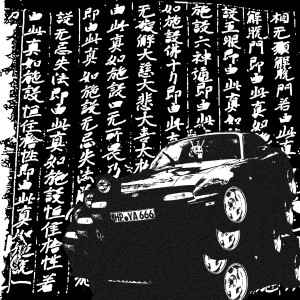 相无願解脫門若由此
解脫門即由此真如
設五眼即由此真如
施設六神通即由此
如施設佛十力即由此
无礙解大慈大悲大喜大
由此真如施設四无所畏乃
即由此真如施設无忘失法
設无忘失法即由此真如施設恒住捨性若
由此真如施設恒住捨性即由此真如施設一
HP VA 666